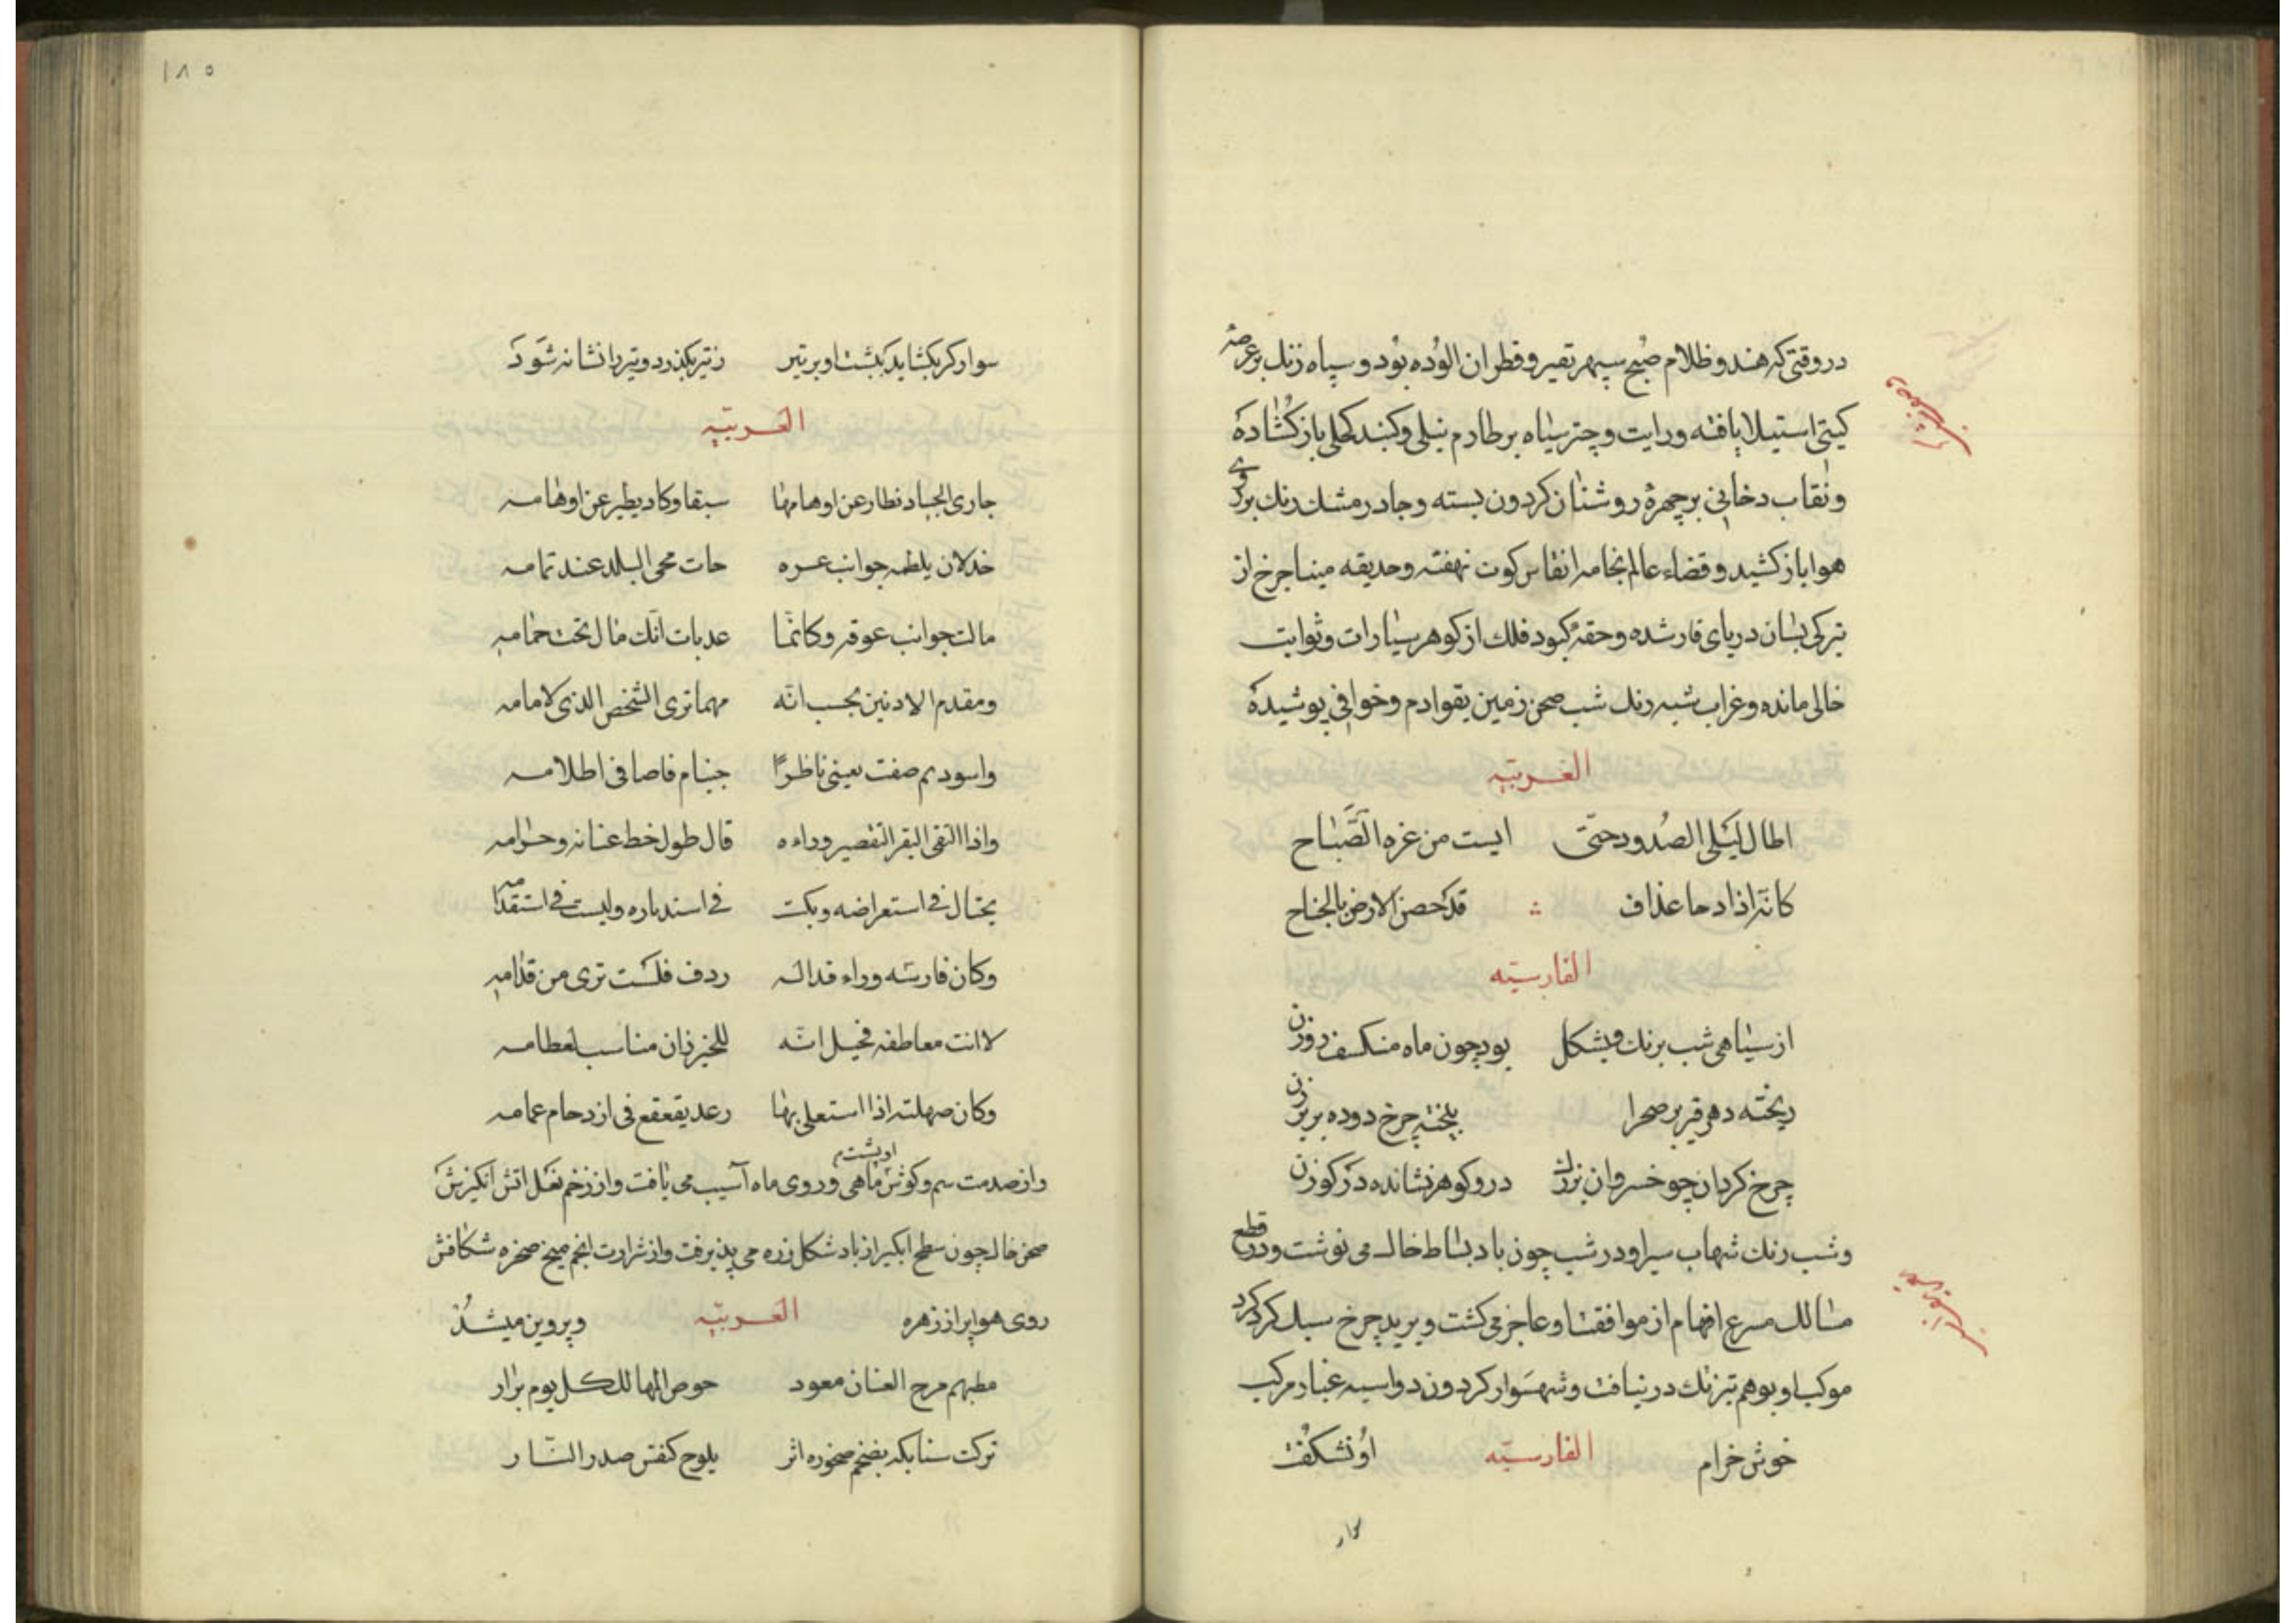 در وقتی که هندو ظلام صبح سپهر بقیر و قطران الوده بود و سپاه زنك بر عرصه
کیتی استیلا یافته و رایت و چتر سیاه بر طارم نیلی و کنبد کحلی باز کشاده
و نقاب دخانی بر چهرهٔ روشنان کردون بسته و جادر مشك رنك بر روی
هوا باز کشید و فضاء عالم بجامه انقاس کوت نهفته و حدیقه مینا جرخ از
تیرکی بسان دریای قار شده و حقهٔ کبود فلك از کوهر سیارات و ثوابت
خالی مانده و غراب شبه رنك شب صحن زمین بقوادم و خوافی پوشیده
العربیّه
اطال لیلی الصدود حتّی ایست من غره الصّباح
کانّه اذا دحا غداف قد حصن الارض بالجناح
الفارسیّه
از سیاهی شب برنك و بشکل بود چون ماه منکسف روزن
ریخته دهر قیر بر صحرا بیخته چرخ دوده بر برزن
چرخ کردان چو خسروان بزرك در و کوهر نشانده در کرزن
و شب رنك شهاب سیر او در شب چون باد بساط خاك می نوشت و در قطع
مسالك مسرع افهام از موافقت او عاجز می کشت و برید چرخ سبك کرد کرد
موکب او بوهم تیزتك در نیافت و شهسوار کردون دو اسبه غبار مرکب
خوش خرام الفارسیّه او نشکفت
۱۸۵
سوار کر بکشاید بکشت او بر تیر ز تیر بکذرد و تیر را نشانه شود
العربیّه
جاری الجیاد فطار عن اوهامها سبقا و کاد یطیر عن اوهامه
خدلان یلطمه جوانب عره حات محی البلد عند تمامه
مالت جوانب عوفه و کانّما عدبات اثك مال تحت حمامه
و مقدم الادنین بحسب انّه مهما تری الشخص الذی لامامه
واسود ثم صفت بعینی ناظرًا فی اطلامه
واذا التقی وراءه قال طول خط عنانه و حزامه
یختال فی استعراضه و یکب فی استدباره و لیست فی استقدامه
وکان فارسه وراء قداله ردف فلست تری من قدّامه
لانت معاطفه فخیل انّه للخیزران مناسب لعظامه
وکان صهلته اذا استعلی بها رعد یقعقع فی ازدحام غمامه
و از صدمت سم و کوش او پشت ماهی و روی ماه آسیب می یافت و از زخم نعل اتش انکیزش
صحن خاك چون سطح ابکیر از باد شکل زره می پذیرفت و از شرارت انجم میخ صخره شکافش
روی هوا پر از زهره و پروین میشد
العربیّه
مطهم مرح العنان معود خوض المهالك کل یوم براز
ترکت سنابکه بضخم صخوره اثر یلوح کنقش صدر البّاز